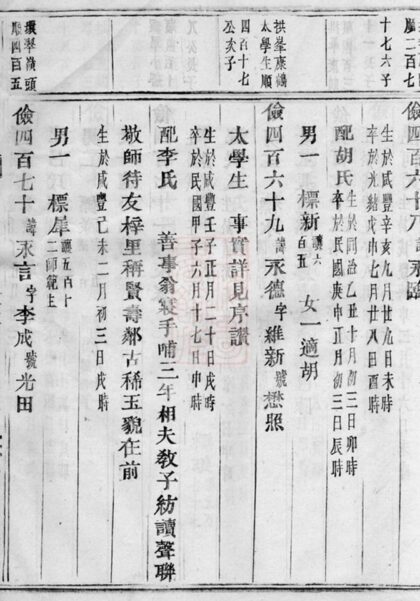 十七六子
太學生順
四百十七
環翠嶺頭
順四百五
儉四百六十八諱永
生於咸豐辛亥九月廿九日未時
卒於光緒戊申七月廿八日酉時
配胡氏
生於同治乙丑十月初三日卯時
卒於民國庚申正月初三日辰時
男一 標新 讓六百五 女一適胡
儉四百六十九諱永德字維新號懋照
太學生 事實詳見序讚
生於咸豐壬子正月二十日戌時
卒於民國甲子六月十七日申時
配李氏 善事翁寢手哺三年相夫教子紡讀聲聯
敬師待友梓里稱賢壽鄰古稀玉貌在前
生於咸豐己未二月初三日戌時
男一 標犀 讓五百十二師範生
儉四百七十諱永言字李成號光田